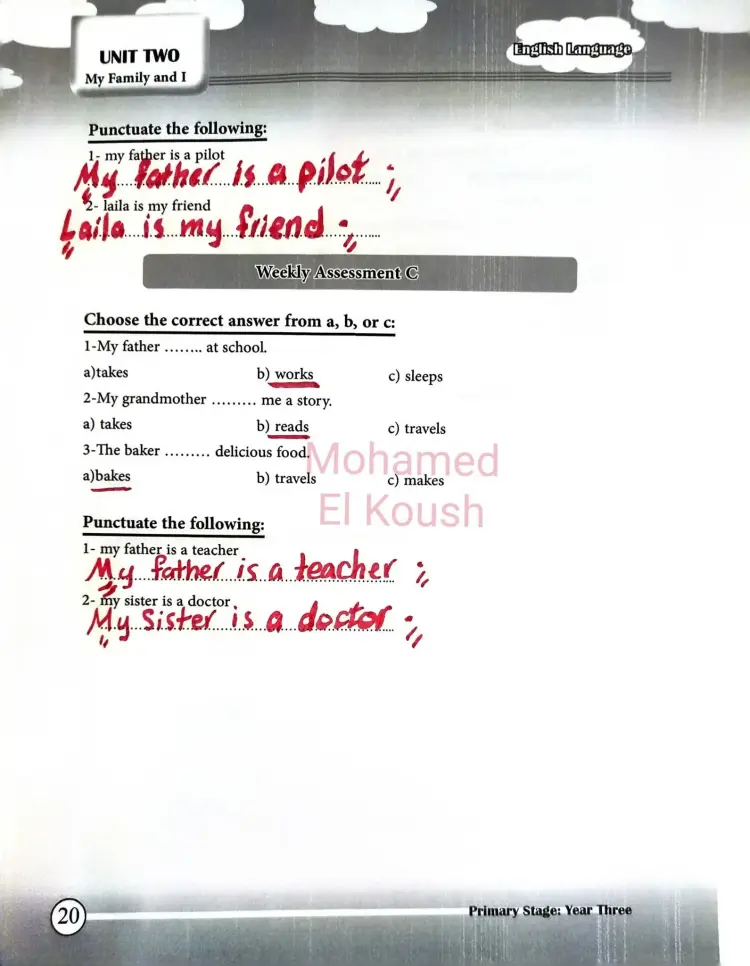 UNIT TWO
My Family and I
English Language
Punctuate the following:
1- my father is a pilot
My father is a pilot .
2- laila is my friend
Laila is my friend .
Weekly Assessment C
Choose the correct answer from a, b, or c:
1-My father ........ at school.
a)takes b) works c) sleeps
2-My grandmother ......... me a story.
a) takes b) reads c) travels
3-The baker ......... delicious food.
a)bakes b) travels c) makes
Mohamed
El Koush
Punctuate the following:
1- my father is a teacher
My father is a teacher .
2- my sister is a doctor .
My sister is a doctor .
20
Primary Stage: Year Three